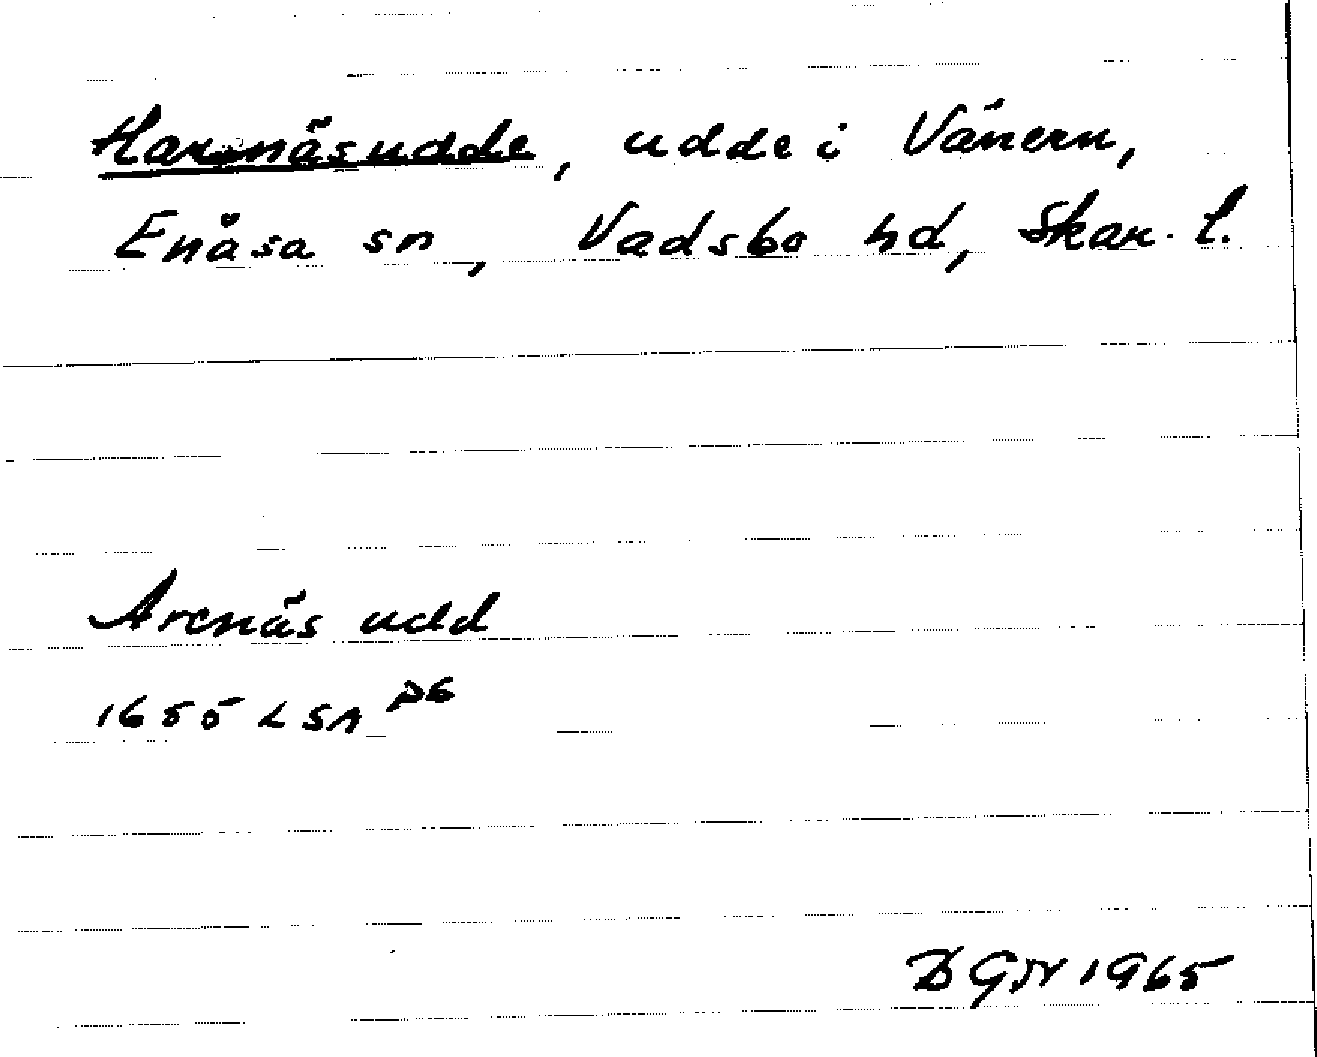 Harnäsudde, udde i Vänern,
Enåsa sn, Vadsbo hd, Skar. l.
Arenäs udd
1655 LSA P6
DGN 1965